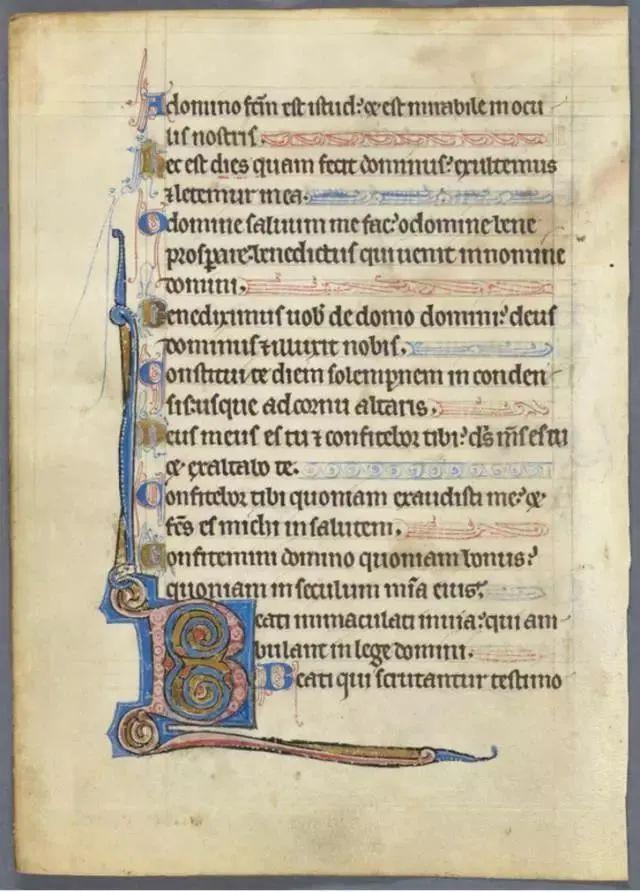 A domino fc̄m est istud: ⁊ est mirabile in ocu
lis nostris.
Hec est dies quam fecit dominus: exultemus
⁊ letemur in ea.
O domine saluum me fac: o domine bene
prosperare: benedictus qui uenit in nomine
domini.
Benediximus uob̄ de domo domini: deus
dominus ⁊ illuxit nobis.
Constitui te diem solempnem in conden
sis: usque ad cornu altaris.
Deus meus es tu ⁊ confitebor tibi: ds̄ ms̄ es tu
⁊ exaltabo te.
Confitebor tibi quoniam exaudisti me: ⁊
fc̄s es michi in salutem.
Confitemini domino quoniam bonus:
quoniam in seculum mīa eius.
Beati immaculati in uia: qui am
bulant in lege domini.
Beati qui scrutantur testimo